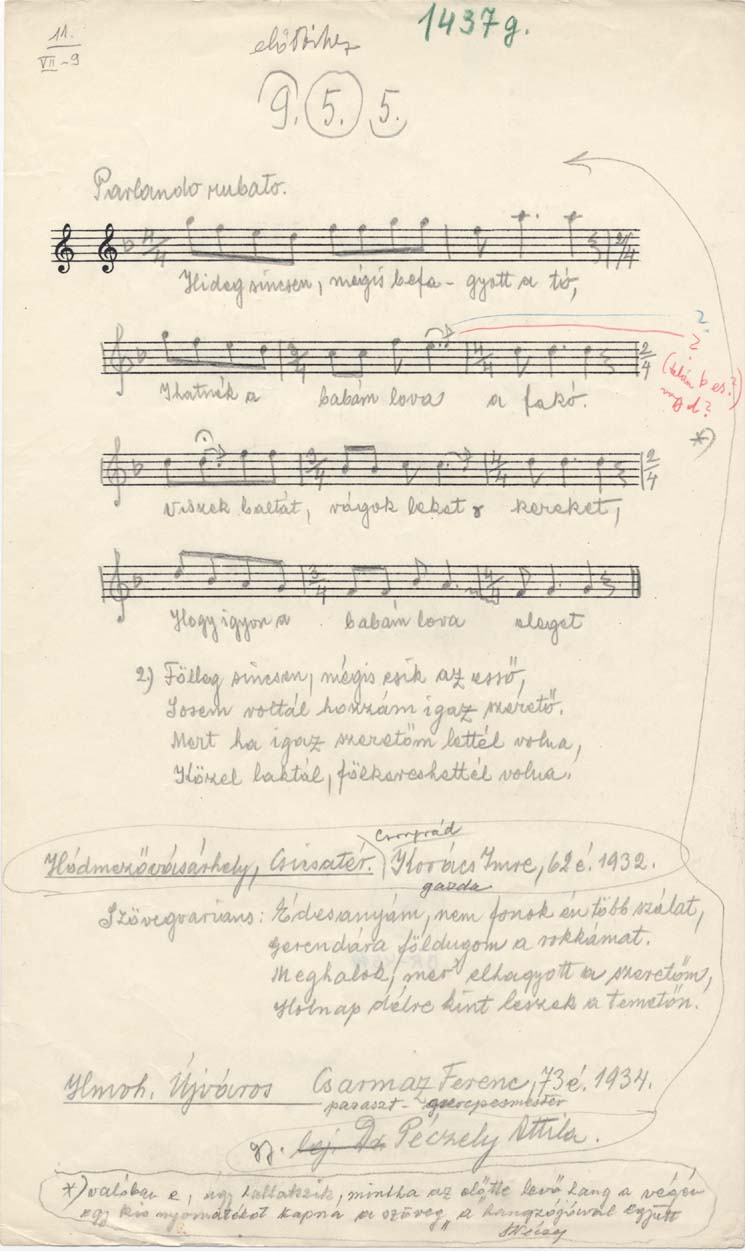 11.
VII-9
1437g.
előzőihez
9. 5. 5.
Parlando rubato.
4/4 2/4
Hideg sincsen, mégis befa - gyott a tó,
3/4 4/4 2/4
Ihatnék a babám lova a fakó.
?
?
(talán b es?)
*)
3/4 4/4 2/4
Viszek baltát, vágok leket kereket,
3/4 4/4
Hogy igyon a babám lova eleget
2) Fölleg sincsen, mégis esik az esső,
Sosem voltál hozzám igaz szerető.
Mert ha igaz szeretőm lettél volna,
Közel laktál, fölkereshettél volna.
Csorprád
Hódmezővásárhely, Csicsatér. Kovács Imre, 62 é. 1932.
gazda
Szövegvarians: Édesanyám, nem fonok én több szálat,
Gerendára földugom a rokkámat.
Meghalok, mer' elhagyott a szeretőm,
Holnap délre kint leszek a temetőn.
Hmvh. Újváros Csarmaz Ferenc, 73 é. 1934.
paraszt - cserepesmester
gy. lej. Dr. Péczely Attila.
*) valóban e, úgy hallatszik, mintha az előtte levő hang a végén
egy kis nyomatékot kapna a szöveg "a" hangzójával együtt